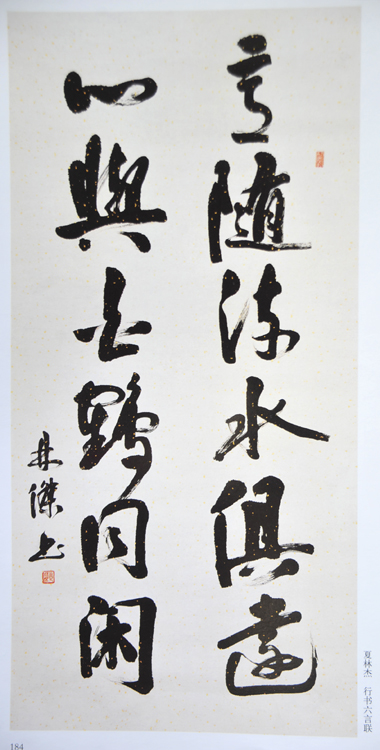 意随流水俱遠
心與白鶴同闲
林傑书
夏林杰 行书六言联
184